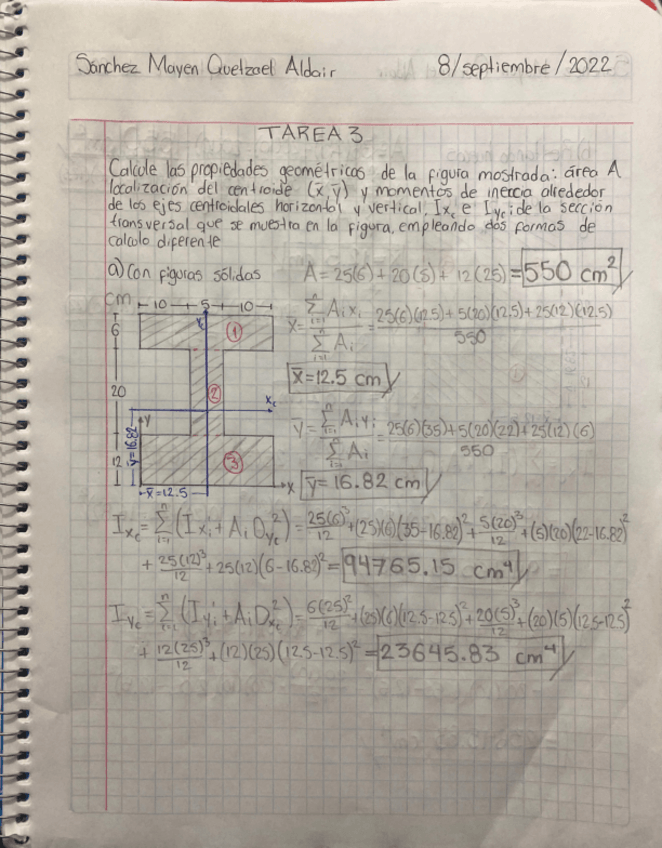 Sánchez Mayen Quetzael Aldair 8/septiembre/2022
TAREA 3
Calcule las propiedades geométricas de la figura mostrada: área A
localización del centroide (x̄, ȳ) y momentos de inercia alrededor
de los ejes centroidales horizontal y vertical, Ixc e Iyc; de la sección
transversal que se muestra en la figura, empleando dos formas de
calculo diferente
a) Con figuras sólidas A = 25(6) + 20(5) + 12(25) = 550 cm²
cm 10 5 10
6 ①
20 ②
12 ③
Xc
Y
X
ȳ=16.82
x̄=12.5
x̄ = Σ(i=1→n) Ai xi / Σ(i=1→n) Ai = 25(6)(12.5)+5(20)(12.5)+25(12)(12.5) / 550
x̄ = 12.5 cm
ȳ = Σ(i=1→n) Ai yi / Σ(i=1→n) Ai = 25(6)(35)+5(20)(22)+25(12)(6) / 550
ȳ = 16.82 cm
Ixc = Σ(i=1→n) (Ixi + Ai Dyc²) = 25(6)³/12 + (25)(6)(35-16.82)² + 5(20)³/12 + (5)(20)(22-16.82)²
+ 25(12)³/12 + 25(12)(6-16.82)² = 94765.15 cm⁴
Iyc = Σ(i=1→n) (Iyi + Ai Dxc²) = 6(25)²/12 + (25)(6)(12.5-12.5)² + 20(5)³/12 + (20)(5)(12.5-12.5)²
+ 12(25)³/12 + (12)(25)(12.5-12.5)² = 23645.83 cm⁴